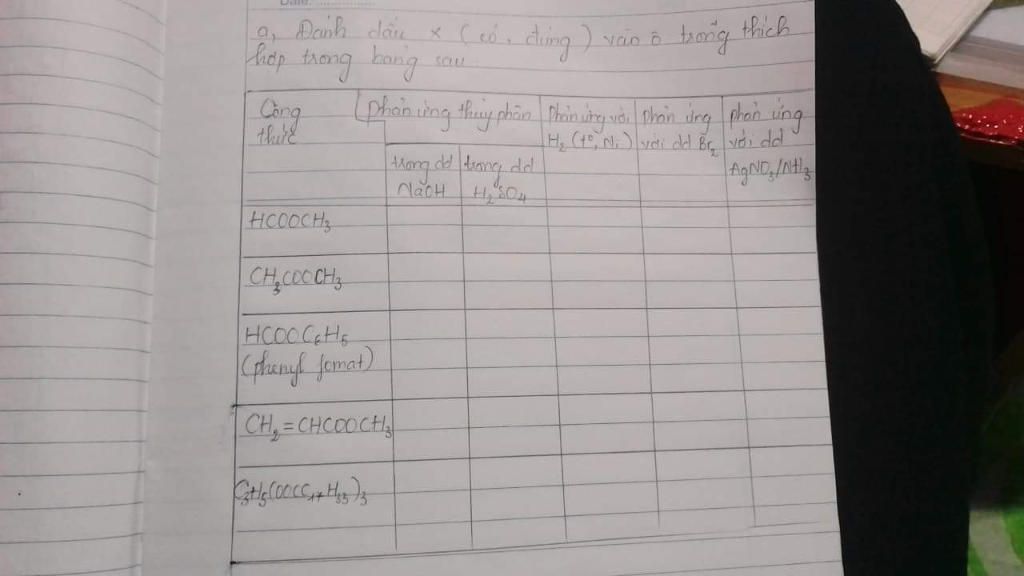 a, Đánh dấu x (có, đúng) vào ô trống thích
hợp trong bảng sau
Công thức
Phản ứng thủy phân
Phản ứng với H₂ (t°, Ni)
phản ứng với dd Br₂
phản ứng với dd AgNO₃/NH₃
trong dd NaOH
trong dd H₂SO₄
HCOOCH₃
CH₃COOCH₃
HCOOC₆H₅
(phenyl fomat)
CH₂=CHCOOCH₃
C₃H₅(OOCC₁₇H₃₃)₃